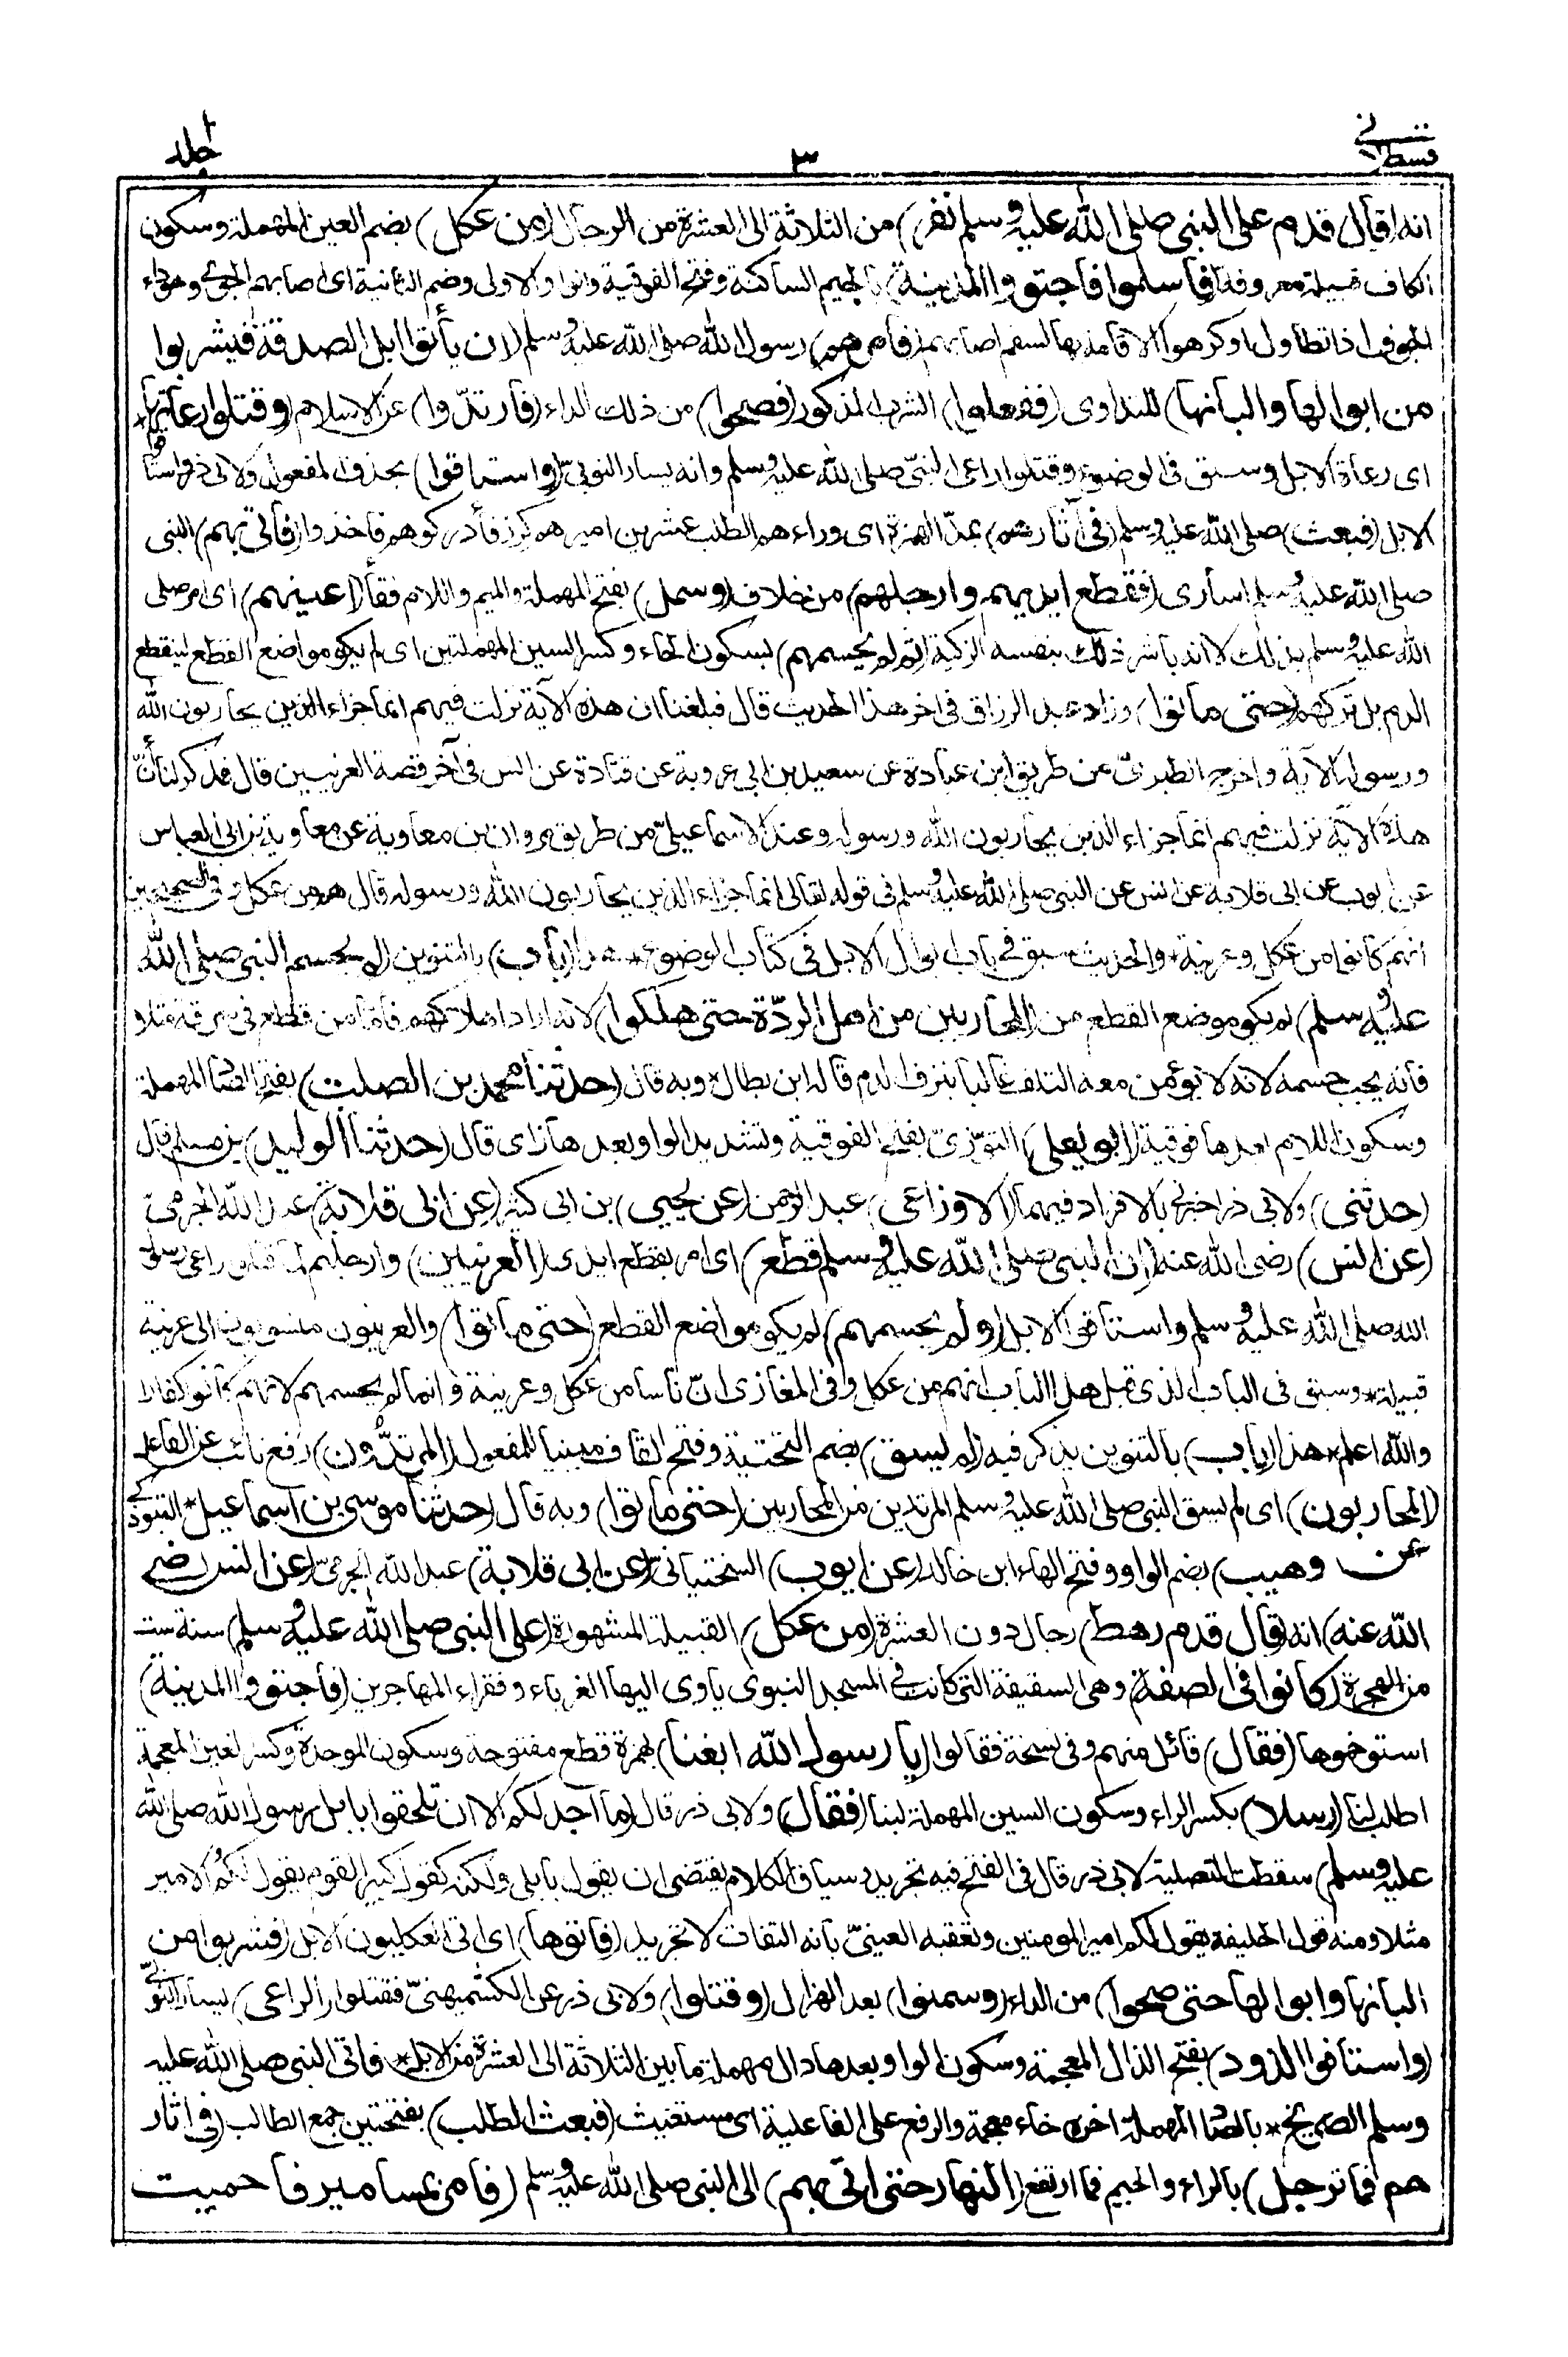 قسطلانی
٣
جلد ١٠
انه (قال قدم على النبى صلى الله عليه وسلم نفر) من الثلاثة الى العشرة من الرجال (من عكل) بضم العين المهملة وسكون
الكاف قبيلة معروفة (فاسلموا فاجتووا المدينة) بالجيم الساكنة وفتح الفوقية والواو الاولى وضم الثانية اى اصابهم الجوى وهو داء
الجوف اذا تطاول او كرهوا الاقامة بها لسقم اصابهم (فامرهم) رسول الله صلى الله عليه وسلم (ان ياتوا ابل الصدقة فيشربوا
من ابوالها والبانها) للتداوى (ففعلوا) الشرب المذكور (فصحوا) من ذلك الداء (فارتدّوا) عن الاسلام (وقتلوا رعاتها)
اى رعاة الابل وسبق فى الوضوء وقتلوا راعى النبىّ صلى الله عليه وسلم وانه يسار النوبىّ (واستاقوا) بحذف المفعول ولابى ذر واستاقوا
الابل (فبعث) صلى الله عليه وسلم (فى آثارهم) بمدّ الهمزة اى وراءهم الطلب عشرين اميرهم كرز فأدركوهم فاخذوا (فأتى بهم) النبى
صلى الله عليه وسلم اسارى (فقطع ايديهم وارجلهم) من خلاف (وسمل) بفتح المهملة والميم واللام فقأ (اعينهم) اى امر صلى
الله عليه وسلم بذلك لا انه باشر ذلك بنفسه الزكية (ثم لم يحسمهم) بسكون الحاء وكسر السين المهملتين اى لم يكو مواضع القطع لينقطع
الدم بل تركهم (حتى ماتوا) وزاد عبد الرزاق فى اخر هذا الحديث قال فبلغنا ان هذه الآية نزلت فيهم انما جزاء الذين يحاربون الله
ورسوله الآية واخرج الطبرىّ عن طريق ابن عبادة عن سعيد بن ابى عروبة عن قتادة عن انس فى آخر قصة العرنيين قال فذكر لنا أنّ
هذه الآية نزلت فيهم انما جزاء الذين يحاربون الله ورسوله وعند الاسماعيلىّ من طريق مروان بن معاوية عن معاوية بن ابى العباس
عن ايوب عن ابى قلابة عن انس عن النبى صلى الله عليه وسلم فى قوله تعالى انما جزاء الذين يحاربون الله ورسوله قال هم من عكل وفى الصحيحين
انهم كانوا من عكل وعرينة * والحديث سبق فى باب ابوال الابل فى كتاب الوضوء * هذا (باب) بالتنوين (لم يحسم النبى صلى الله
عليه وسلم) لم يكو موضع القطع من (المحاربين من اهل الردّة حتى هلكوا) لانه اراد اهلاكهم فاما من قطع فى سرقة مثلا
فانه يجب حسمه لانه لا يؤمن معه التلف غالبا بنزف الدم قاله ابن بطال * وبه قال (حدثنا محمد بن الصلت) بفتح الصاد المهملة
وسكون اللام بعدها فوقية (ابو يعلى) التوّزىّ بفتح الفوقية وتشديد الواو وبعدها زاى قال (حدثنا الوليد) بن مسلم قال
(حدثنى) ولابى ذر اخبرنى بالافراد فيهما (الاوزاعى) عبد الرحمن (عن يحيى) بن ابى كثير (عن ابى قلابة) عبد الله الجرمىّ
(عن انس) رضى الله عنه (ان النبى صلى الله عليه وسلم قطع) اى امر بقطع ايدى (العرنيين) وارجلهم لما قتلوا راعى رسول
الله صلى الله عليه وسلم واستاقوا الابل (ولم يحسمهم) لم يكو مواضع القطع (حتى ماتوا) والعرنيون منسوبون الى عرينة
قبيلة * وسبق فى الباب الذى قبل هذا الباب انهم من عكل وفى المغازى انّ ناسا من عكل وعرينة وانما لم يحسمهم لانهم كانوا كفارا
والله اعلم * هذا (باب) بالتنوين يذكر فيه (لم يسق) بضم التحتية وفتح القاف مبنيا للمفعول (المرتدّون) رفع نائب عن الفاعل
(المحاربون) اى لم يسق النبى صلى الله عليه وسلم المرتدين من المحاربين (حتى ماتوا) وبه قال (حدثنا موسى بن اسماعيل) التبوذكى
(عن وهيب) بضم الواو وفتح الهاء ابن خالد (عن ايوب) السختيانىّ (عن ابى قلابة) عبد الله الجرمىّ (عن انس رضى
الله عنه) انه (قال قدم رهط) رجال دون العشرة (من عكل) القبيلة المشهورة (على النبى صلى الله عليه وسلم) سنة ست
من الهجرة (كانوا فى الصفة) وهى السقيفة التى كانت فى المسجد النبوى ياوى اليها الغرباء وفقراء المهاجرين (فاجتووا المدينة)
استوخموها (فقال) قائل منهم وفى نسخة فقالوا (يا رسول الله ابغنا) بهمزة قطع مفتوحة وسكون الموحدة وكسر الغين المعجمة
اطلب لنا (رسلا) بكسر الراء وسكون السين المهملة لبنا (فقال) ولابى ذر قال (ما اجد لكم الا ان تلحقوا بابل رسول الله صلى الله
عليه وسلم) سقطت التصلية لابى ذر قال فى الفتح فيه تجريد وسياق الكلام يقتضى ان يقول بابلى ولكنه كقول كبير القوم يقول لكم الامير
مثلا ومنه قول الخليفة يقول لكم امير المومنين وتعقبه العينىّ بانه التفات لا تجريد (فاتوها) اى اتى العكليون الابل (فشربوا من
البانها وابوالها حتى صحوا) من الداء (وسمنوا) بعد الهزال (وقتلوا) ولابى ذر عن الكشميهنىّ فقتلوا (الراعى) يسار النوبىّ
(واستاقوا الذود) بفتح الذال المعجمة وسكون الواو وبعدها دال مهملة ما بين الثلاثة الى العشرة من الابل * فاتى النبى صلى الله عليه
وسلم الصريخ * بالصاد المهملة اخره خاء معجمة والرفع على الفاعلية اى مستغيث (فبعث الطلب) بفتحتين جمع الطالب (فى اثار
هم فما ترجل) بالراء والجيم فما ارتفع (النهار حتى اتى بهم) الى النبى صلى الله عليه وسلم (فامر بمسامير فاحميت